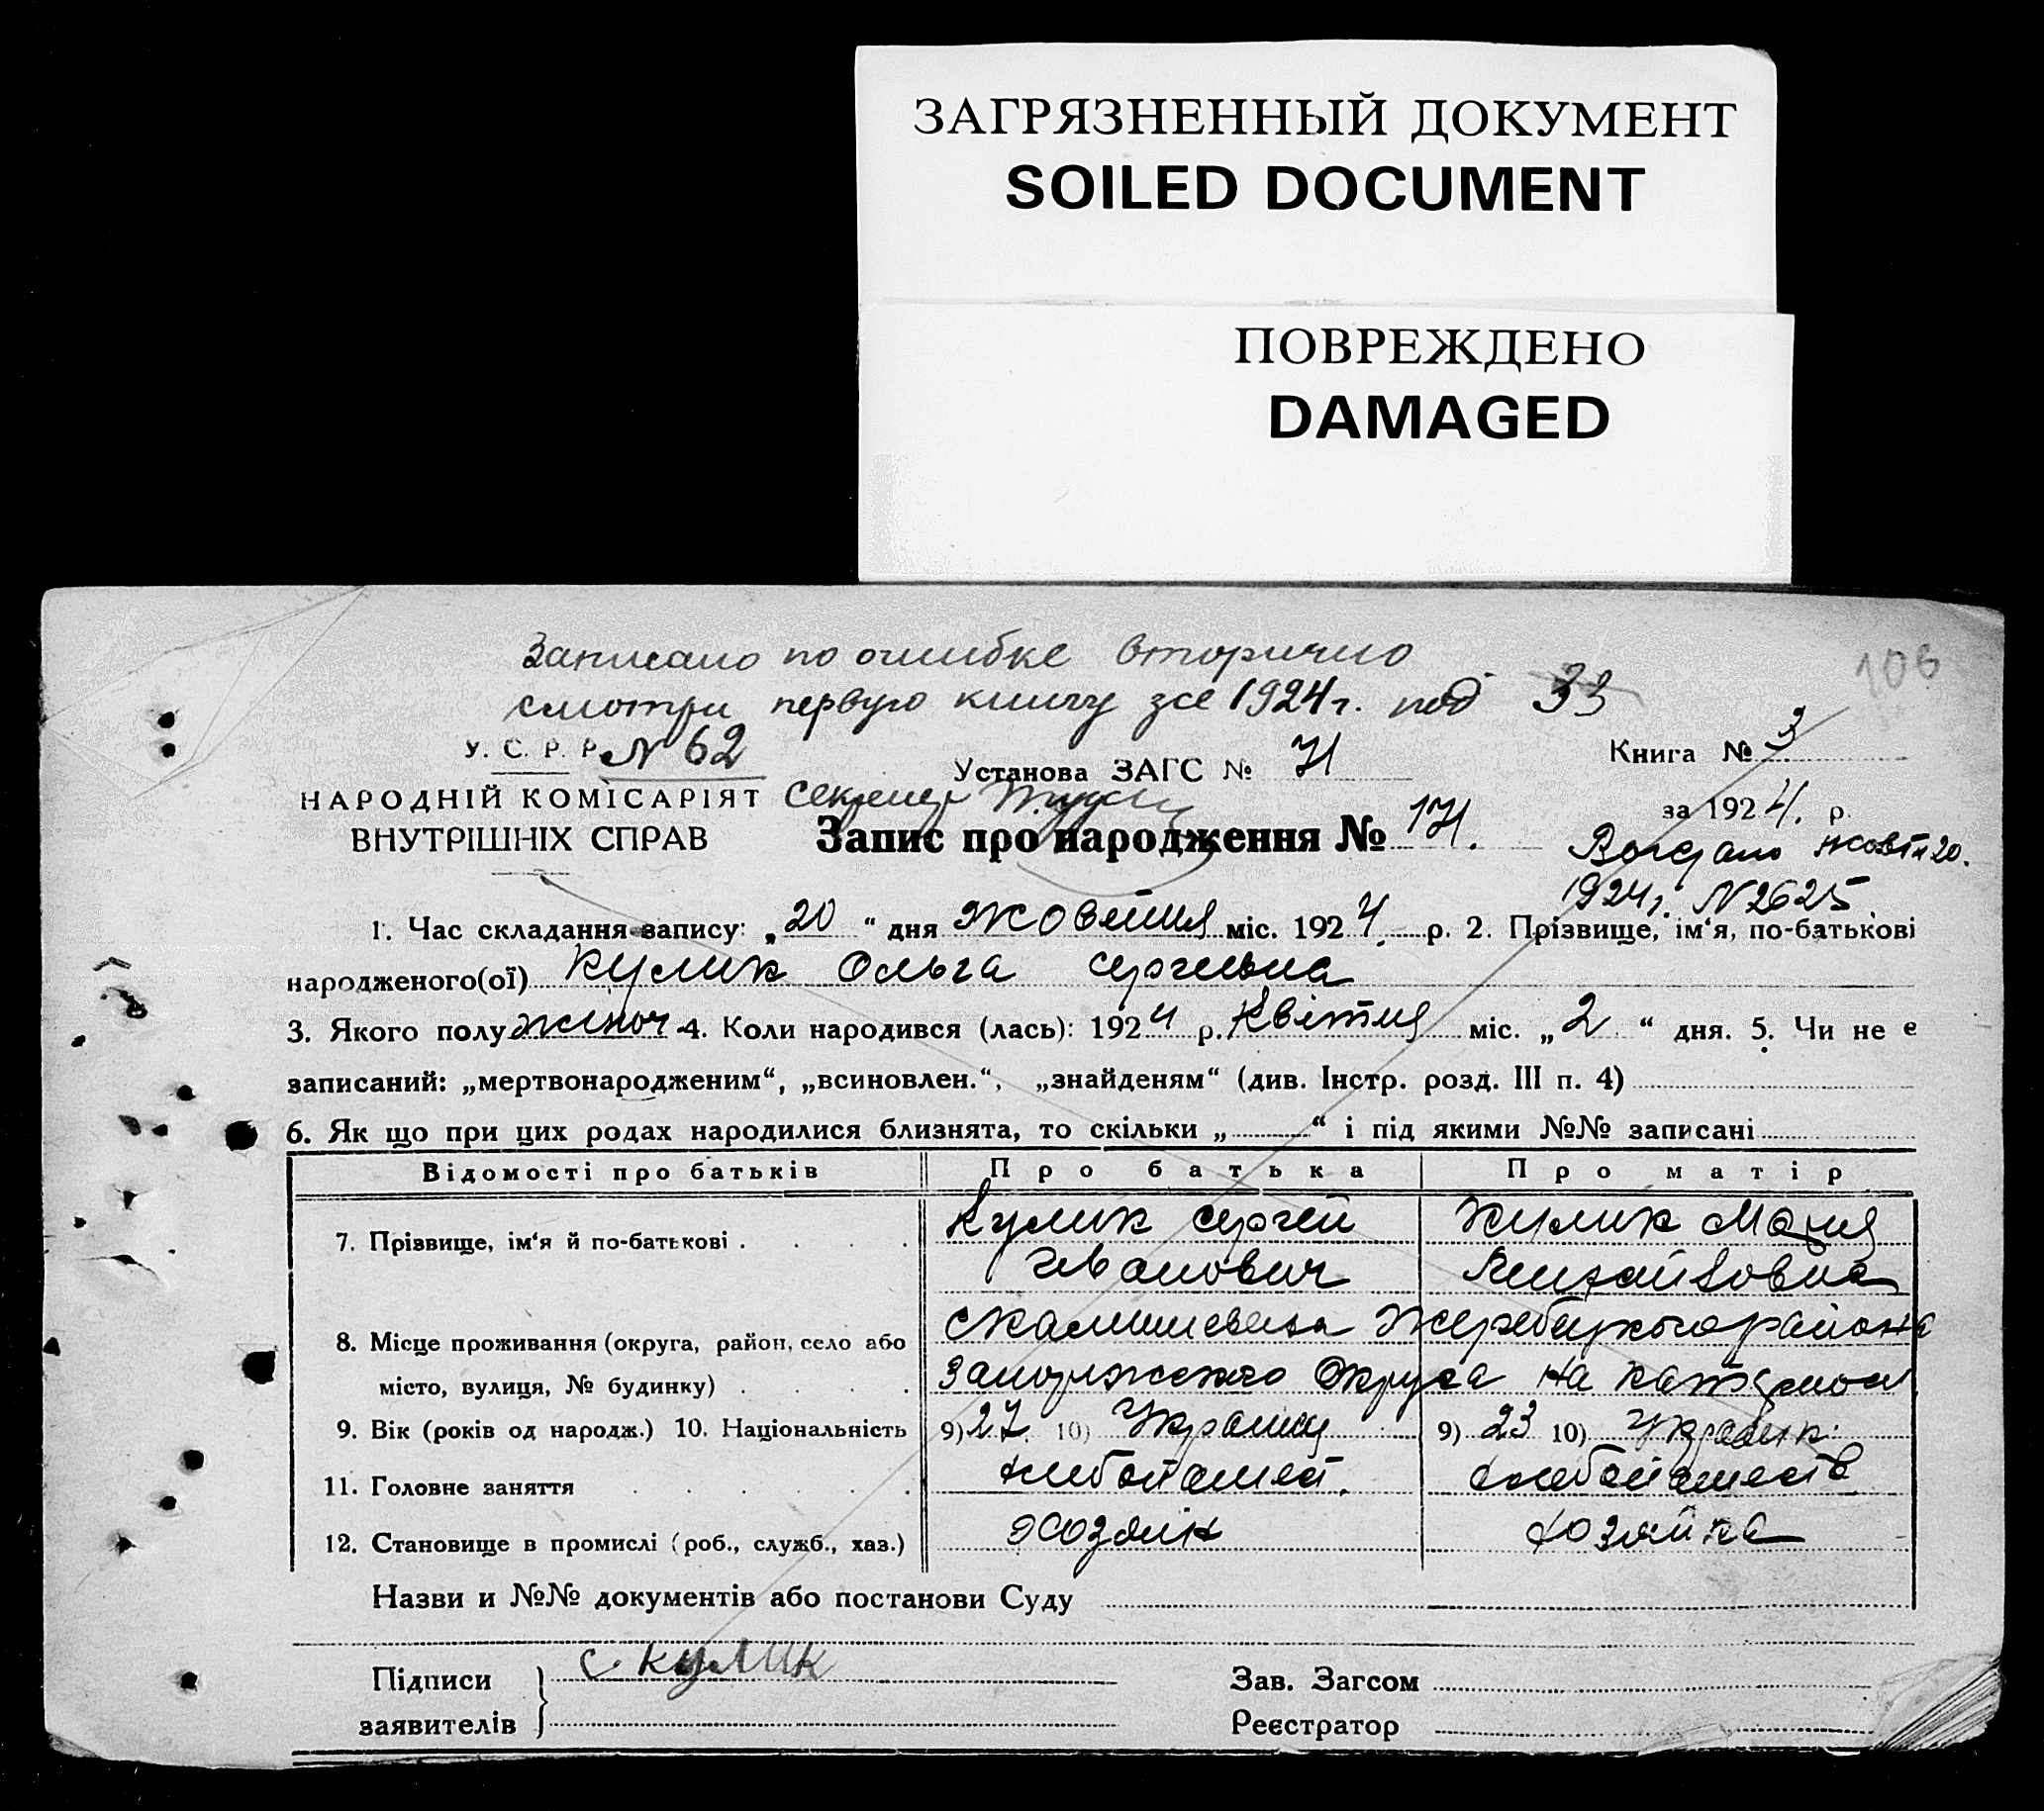 ЗАГРЯЗНЕННЫЙ ДОКУМЕНТ
SOILED DOCUMENT
ПОВРЕЖДЕНО
DAMAGED
106
Записано по ошибке вторично
смотри первую книгу за 1924 г. под 33
У. С. Р. Р. N 62
Установа ЗАГС №
Книга № 3
НАРОДНІЙ КОМІСАРІЯТ
ВНУТРІШНІХ СПРАВ
за 1924. р.
Запис про народження №
Жовтн 20.
1924 г. N 2625
1. Час складання запису: „20“ дня Жовтня міс. 1924 р. 2. Прізвище, ім'я, по-батькові
народженого(ої) Кулик Ольга Сергеевна
3. Якого полу жіноч 4. Коли народився (лась): 1924 р. Квітня міс. „2“ дня. 5. Чи не є
записаний: „мертвонародженим“, „всиновлен.“, „знайденям“ (див. Інстр. розд. III п. 4)
6. Як що при цих родах народилися близнята, то скільки „ “ і під якими №№ записані
Відомості про батьків Про батька Про матір
7. Прізвище, ім'я й по-батькові . . . . Кулик Сергей Кулик Мария
Иванович Михайловна
8. Місце проживання (округа, район, село або Жеребецького района
місто, вулиця, № будинку) . . . . Запоріжского Округа на
9. Вік (років од народж.) 10. Національність 9) 27. 10) Украинц 9) 23 10) Украінк.
11. Головне заняття . . . . . . хлебопашест. хлебопашеств
12. Становище в промислі (роб., служб., хаз.) Хозяін Хозяйка
Назви и №№ документів або постанови Суду
Підписи С. Кулик
заявителів
Зав. Загсом
Реєстратор